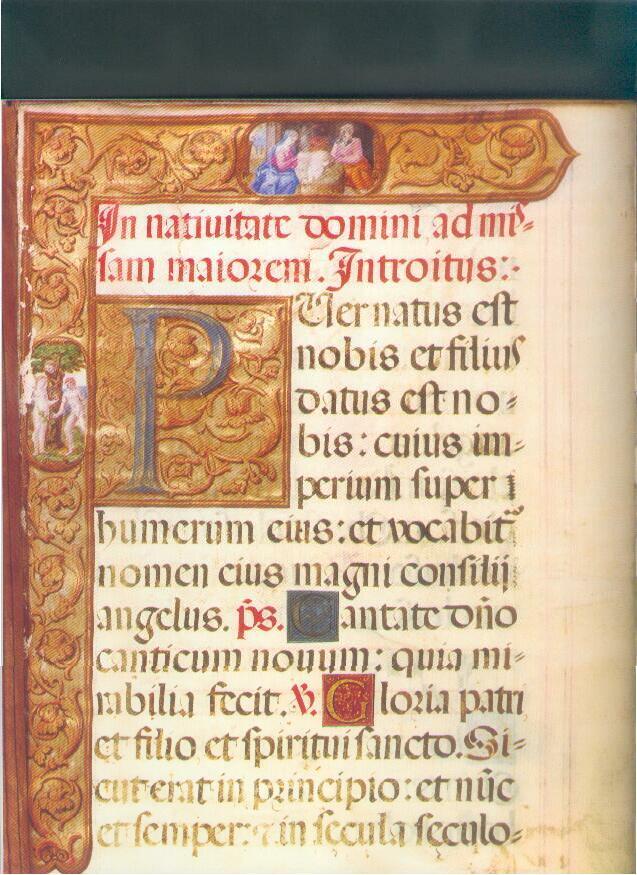 In natiuitate domini ad mis⸗
sam maiorem. Introitus:
PUer natus est
nobis et filius
datus est no⸗
bis: cuius im⸗
perium super
humerum eius: et vocabit̃
nomen eius magni consilij
angelus. p̄s. Cantate dño
canticum nouum: quia mi⸗
rabilia fecit. V. Gloria patri
et filio et spiritui sancto. Si⸗
cut erat in principio: et nūc
et semper: et in secula seculo⸗